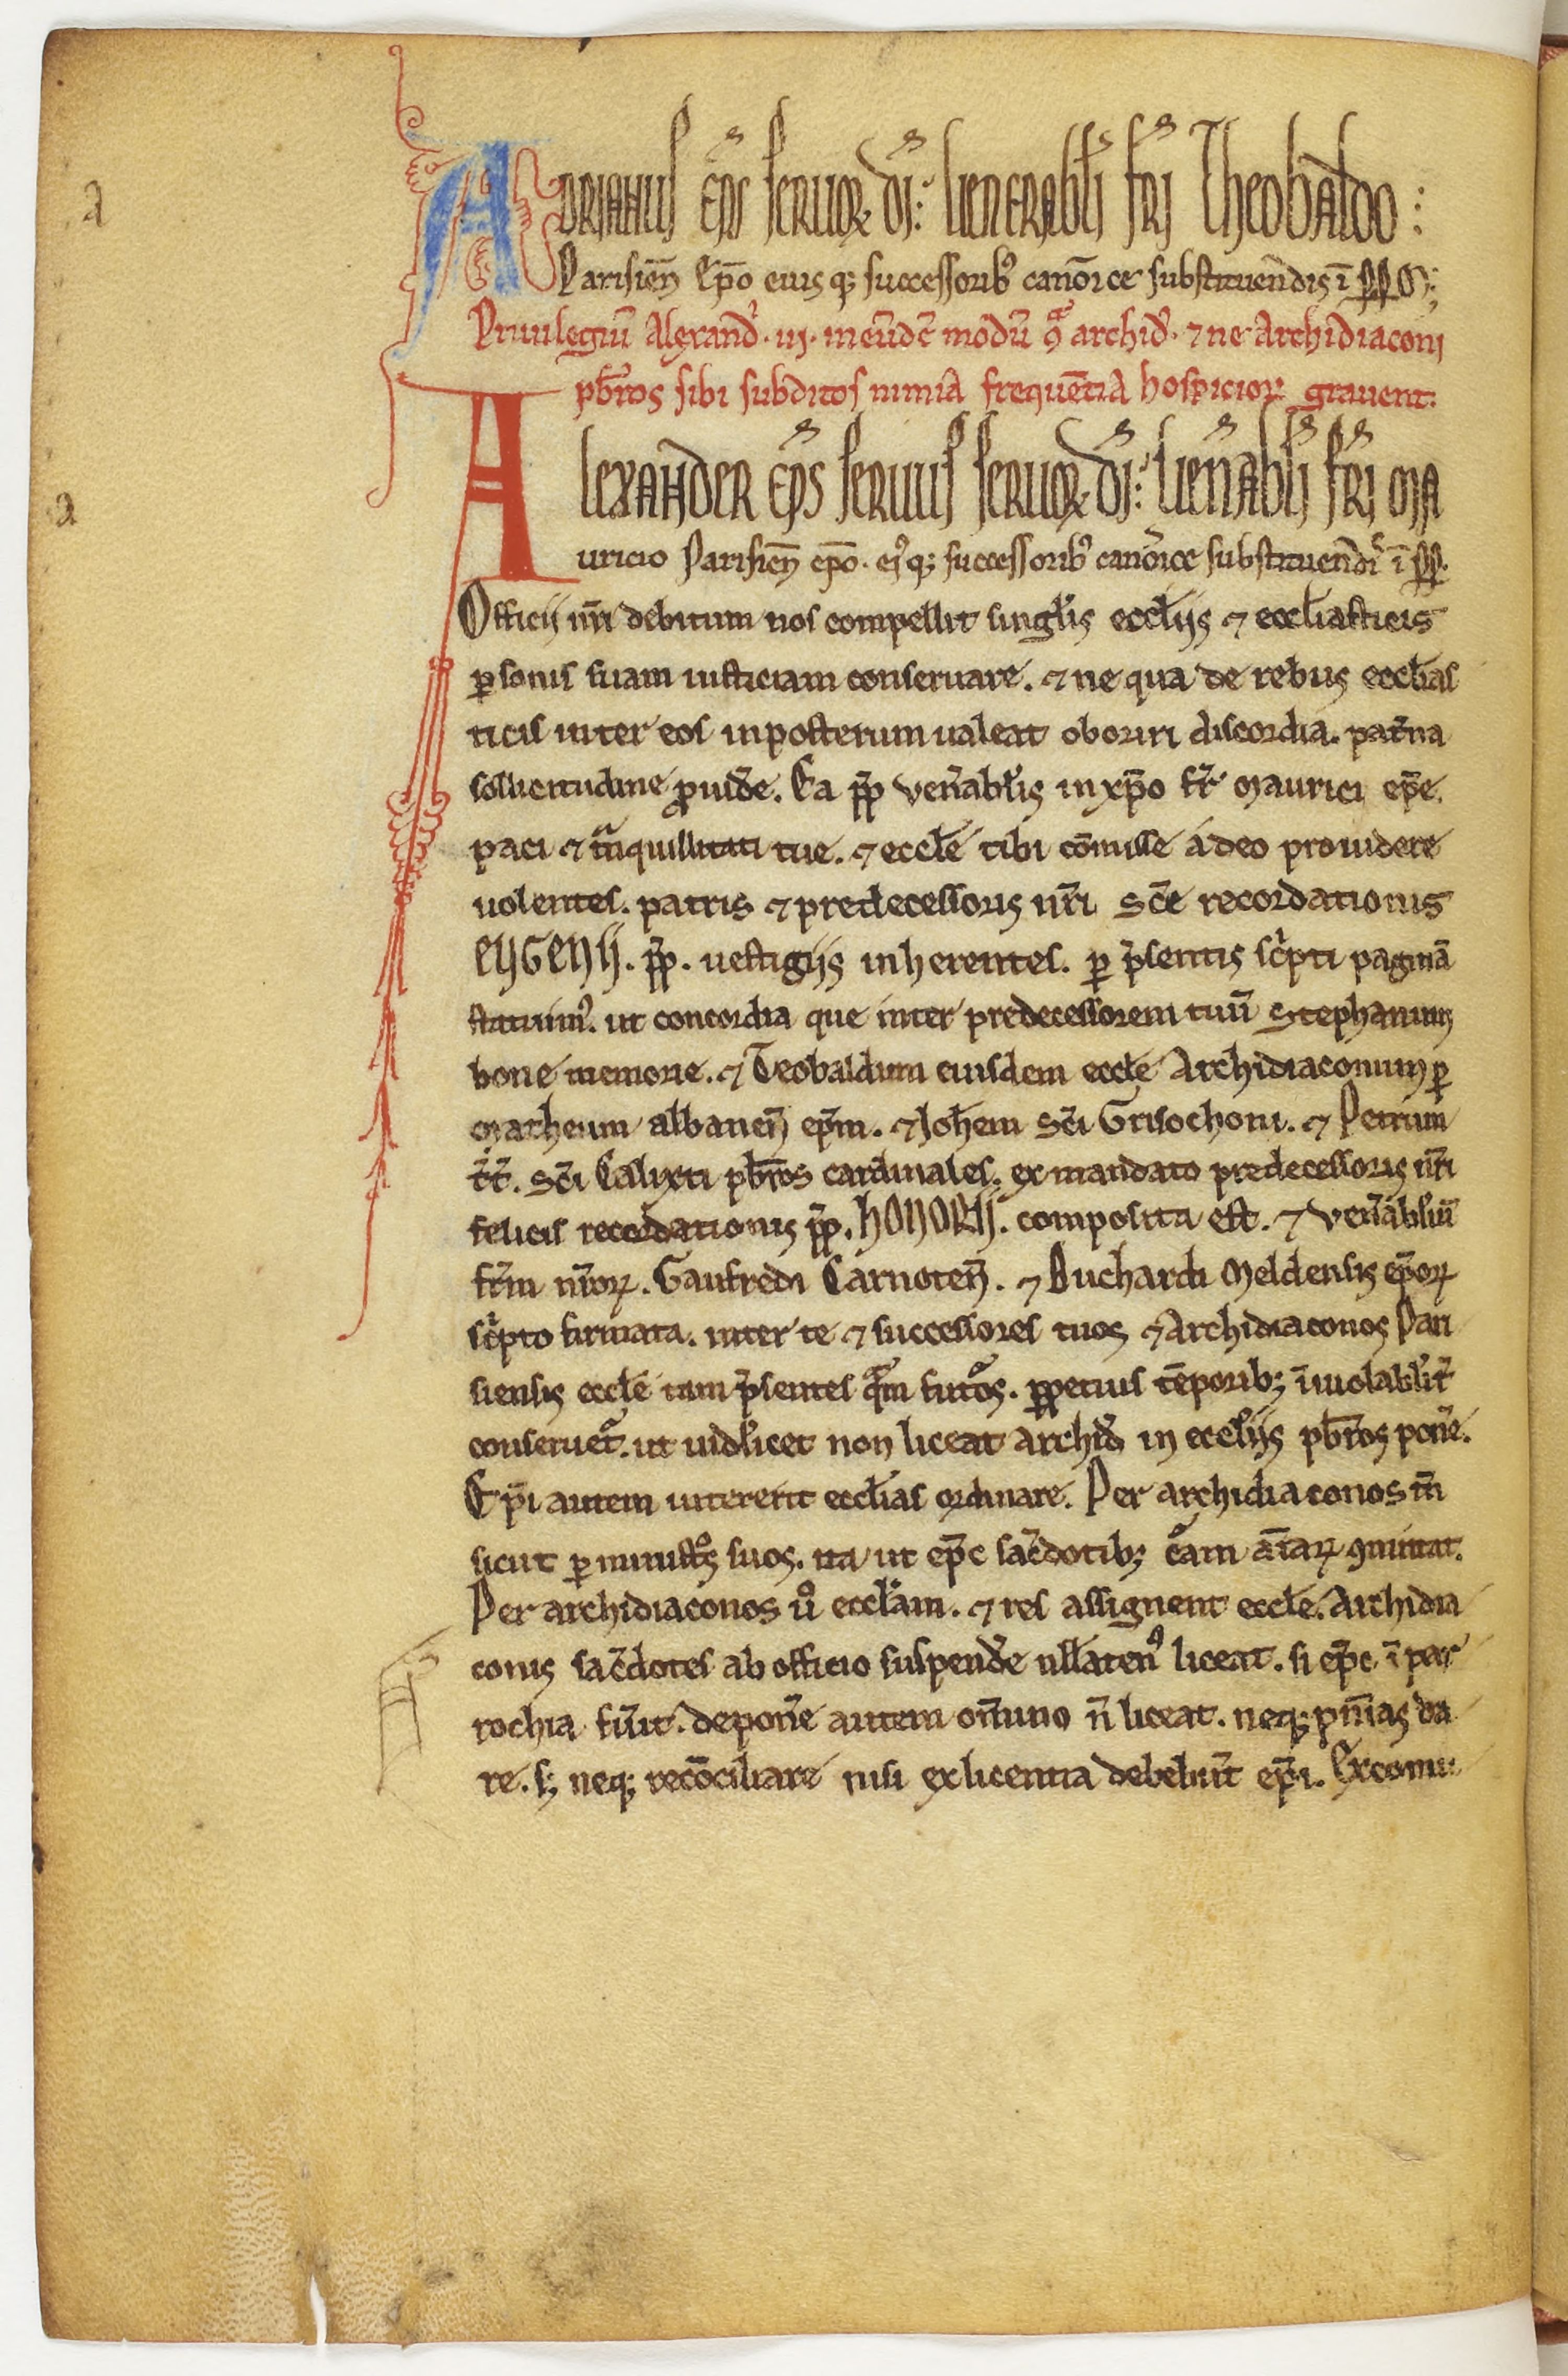 a
ADRIANUS ep̄s seruoꝝ dī: Uenerabl̓i fr̄i Theobaldo:
Parisien̄ Ep̄o eiusq; successorib᷒ canōice substituendis ī ꝑꝑm;
Priuilegiū Alexand̓ .iii. in eūdē modū ꝯᵃ archid̓. ⁊ ne Archidiaconi
pb̄ros sibi subditos nimia frequētia hospicioꝝ grauent.
a
ALEXANDER ep̄s seruus seruoꝝ dī: Uen̄abl̓i fr̄i Ma
uricio Parisien̄ ep̄o. ei᷒q; successorib᷒ canōice substituend̓ ī ꝑꝑ.
Officij nr̄i debitum nos compellit singl̓is eccl̓ijs ⁊ eccl̓iasticis
ꝑsonis suam iusticiam conseruare. ⁊ ne qua de rebus eccl̓ias
ticis inter eos inposterum ualeat oboriri discordia. pat̄na
sollicitudine ꝓuid̓e. Ea ꝓp̄ ven̄abl̓is in xp̄o fr̄ Maurici ep̄e.
paci ⁊ tᵃnquillitati tue. ⁊ eccl̄e tibi cōmisse a deo prouidere
uolentes. patris ⁊ predecessoris nr̄i sc̄e recordationis
EUGENIJ. pp̄. uestigijs inherentes. ꝑ p̄sentis sc̓pti paginā
statuim᷒. ut concordia que inter predecessorem tuū Stephanum
bone memorie. ⁊ Teobaldum eiusdem eccl̄e Archidiaconum ꝑ
Matheum albanen̄ ep̄m. ⁊ Joh̄em Sc̄i Grisochoni. ⁊ Petrum
t̄t̄. Sc̄i Calixti pb̄ros cardinales. ex mandato predecessoris nr̄i
felicis recordationis pp̄. HONORIJ. composita est. ⁊ ven̄abliū
fr̄m nr̄oꝝ. Gaufredi Carnoten̄. ⁊ Buchardi Meldensis ep̄oꝝ
sc̓pto firmata. inter te ⁊ successores tuos ⁊ Archidiaconos Pari
siensis eccl̄e tam p̄sentes qᵃm futos. ꝑpetuis tēporib; īuiolabl̓it̄
conseruet̓. ut uidl̓icet non liceat archid̓ in eccl̓ijs pb̄ros pon̄e.
Ep̄i autem intererit eccl̓ias ordinare. Per archidiaconos tn̄
sicut ꝑ ministᵒs suos. ita ut ep̄c sac̄dotib; cᵃam aīaꝝ ꝯmittat.
Per archidiaconos uᵒ eccl̓iam. ⁊ res assignent eccl̄e. Archidia
conus sac̄dotes ab officio suspend̓e ullaten᷒ liceat. si ep̄c ī par
rochia fu̓it. depon̄e autem om̄ino n̄ liceat. neq; pn̄ias da
re. s; neq; recōciliare nisi ex licentia debebūt ep̄i. Excomu